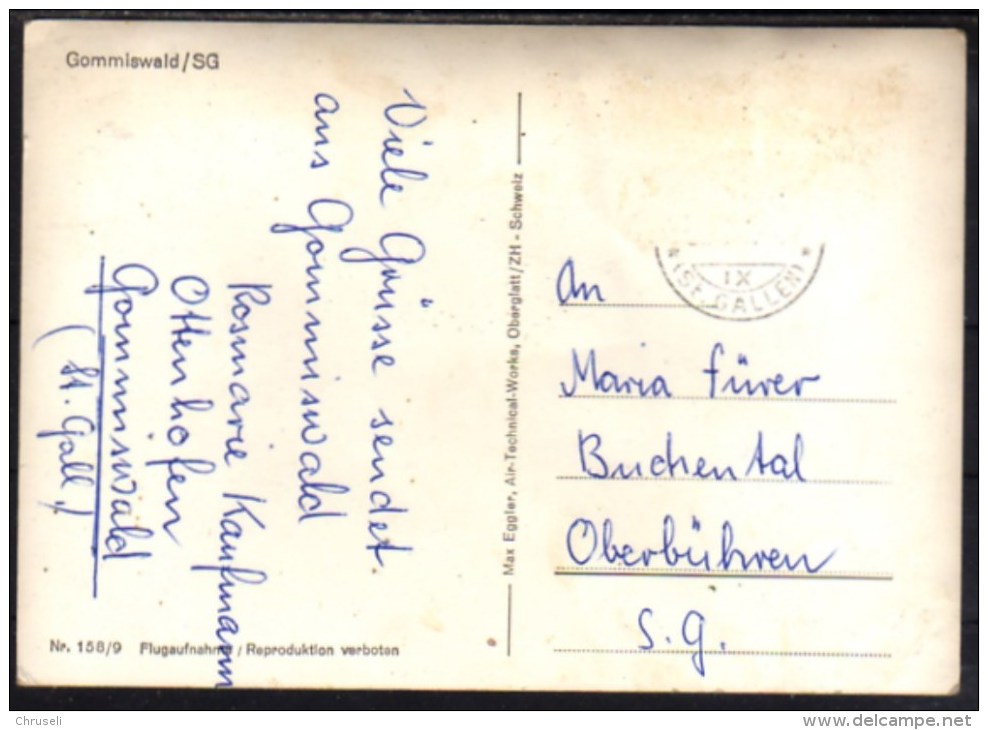 Gommiswald/SG
Viele Grüsse sendet
aus Gommiswald
Rosmarie Kaufmann
Ottenhofen
Gommiswald
(St. Gall.)
Max Eggler, Air-Technical-Works, Oberglatt/ZH - Schweiz
* IX *
(ST. GALLEN)
An
Maria Fürer
Buchental
Oberbühren
S.G.
Nr. 158/9 Flugaufnahme / Reproduktion verboten
Chruseli
delcampe.net